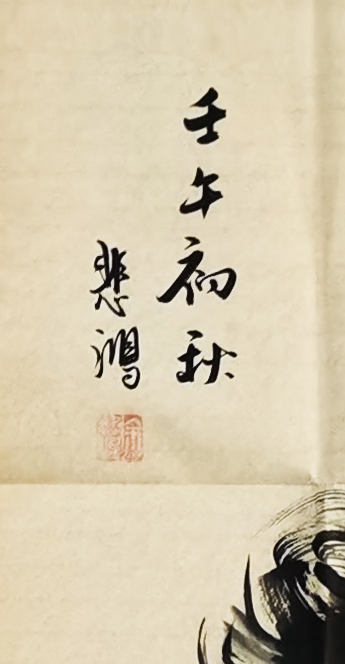 壬午初秋
悲鴻